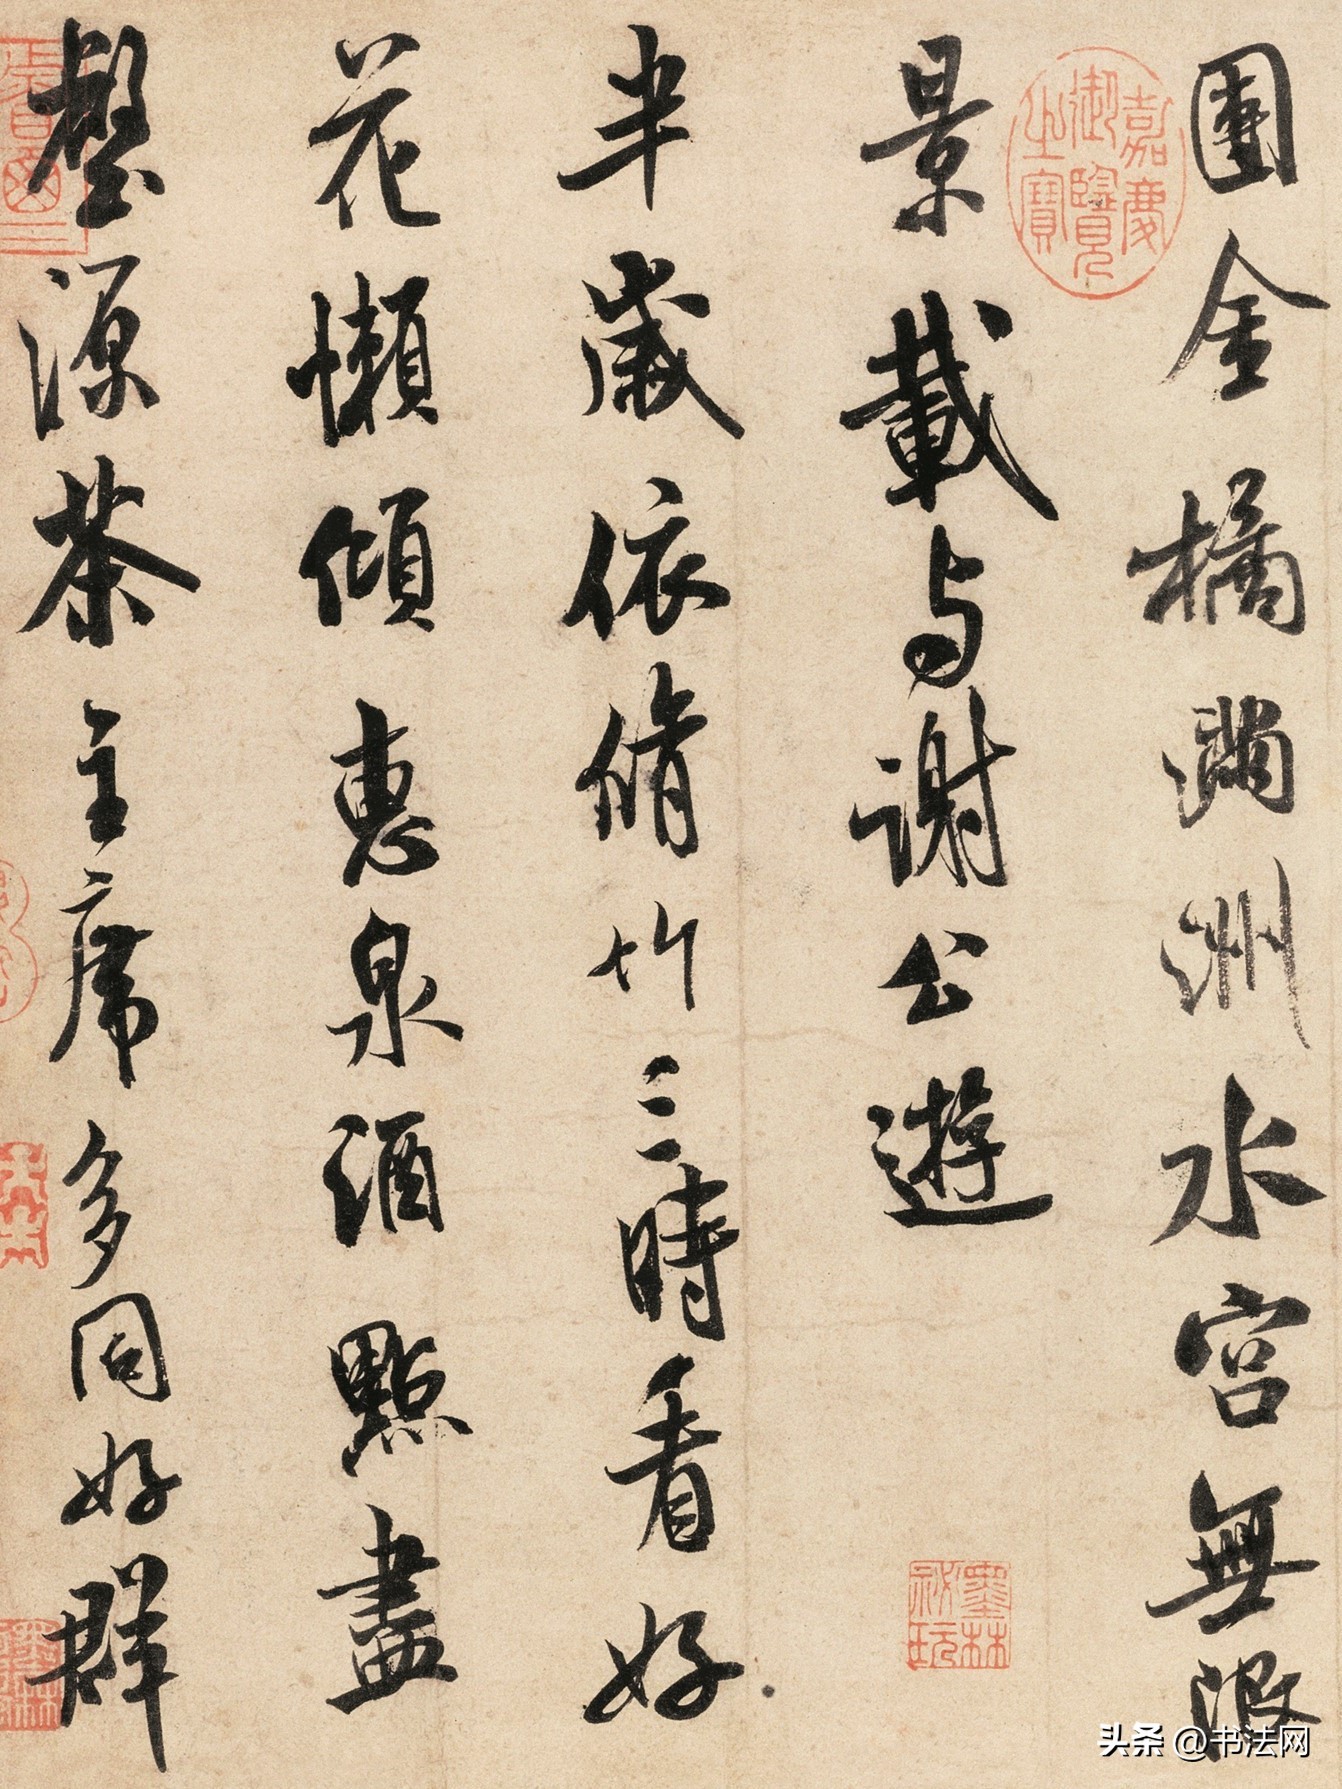 團金橘滿洲水宮無限
景載与謝公遊
半歲依脩竹三時看好
花懶傾惠泉酒點盡
壑源茶主席多同好群
嘉慶御覽之寶
墨林秘玩
头条 @书法网